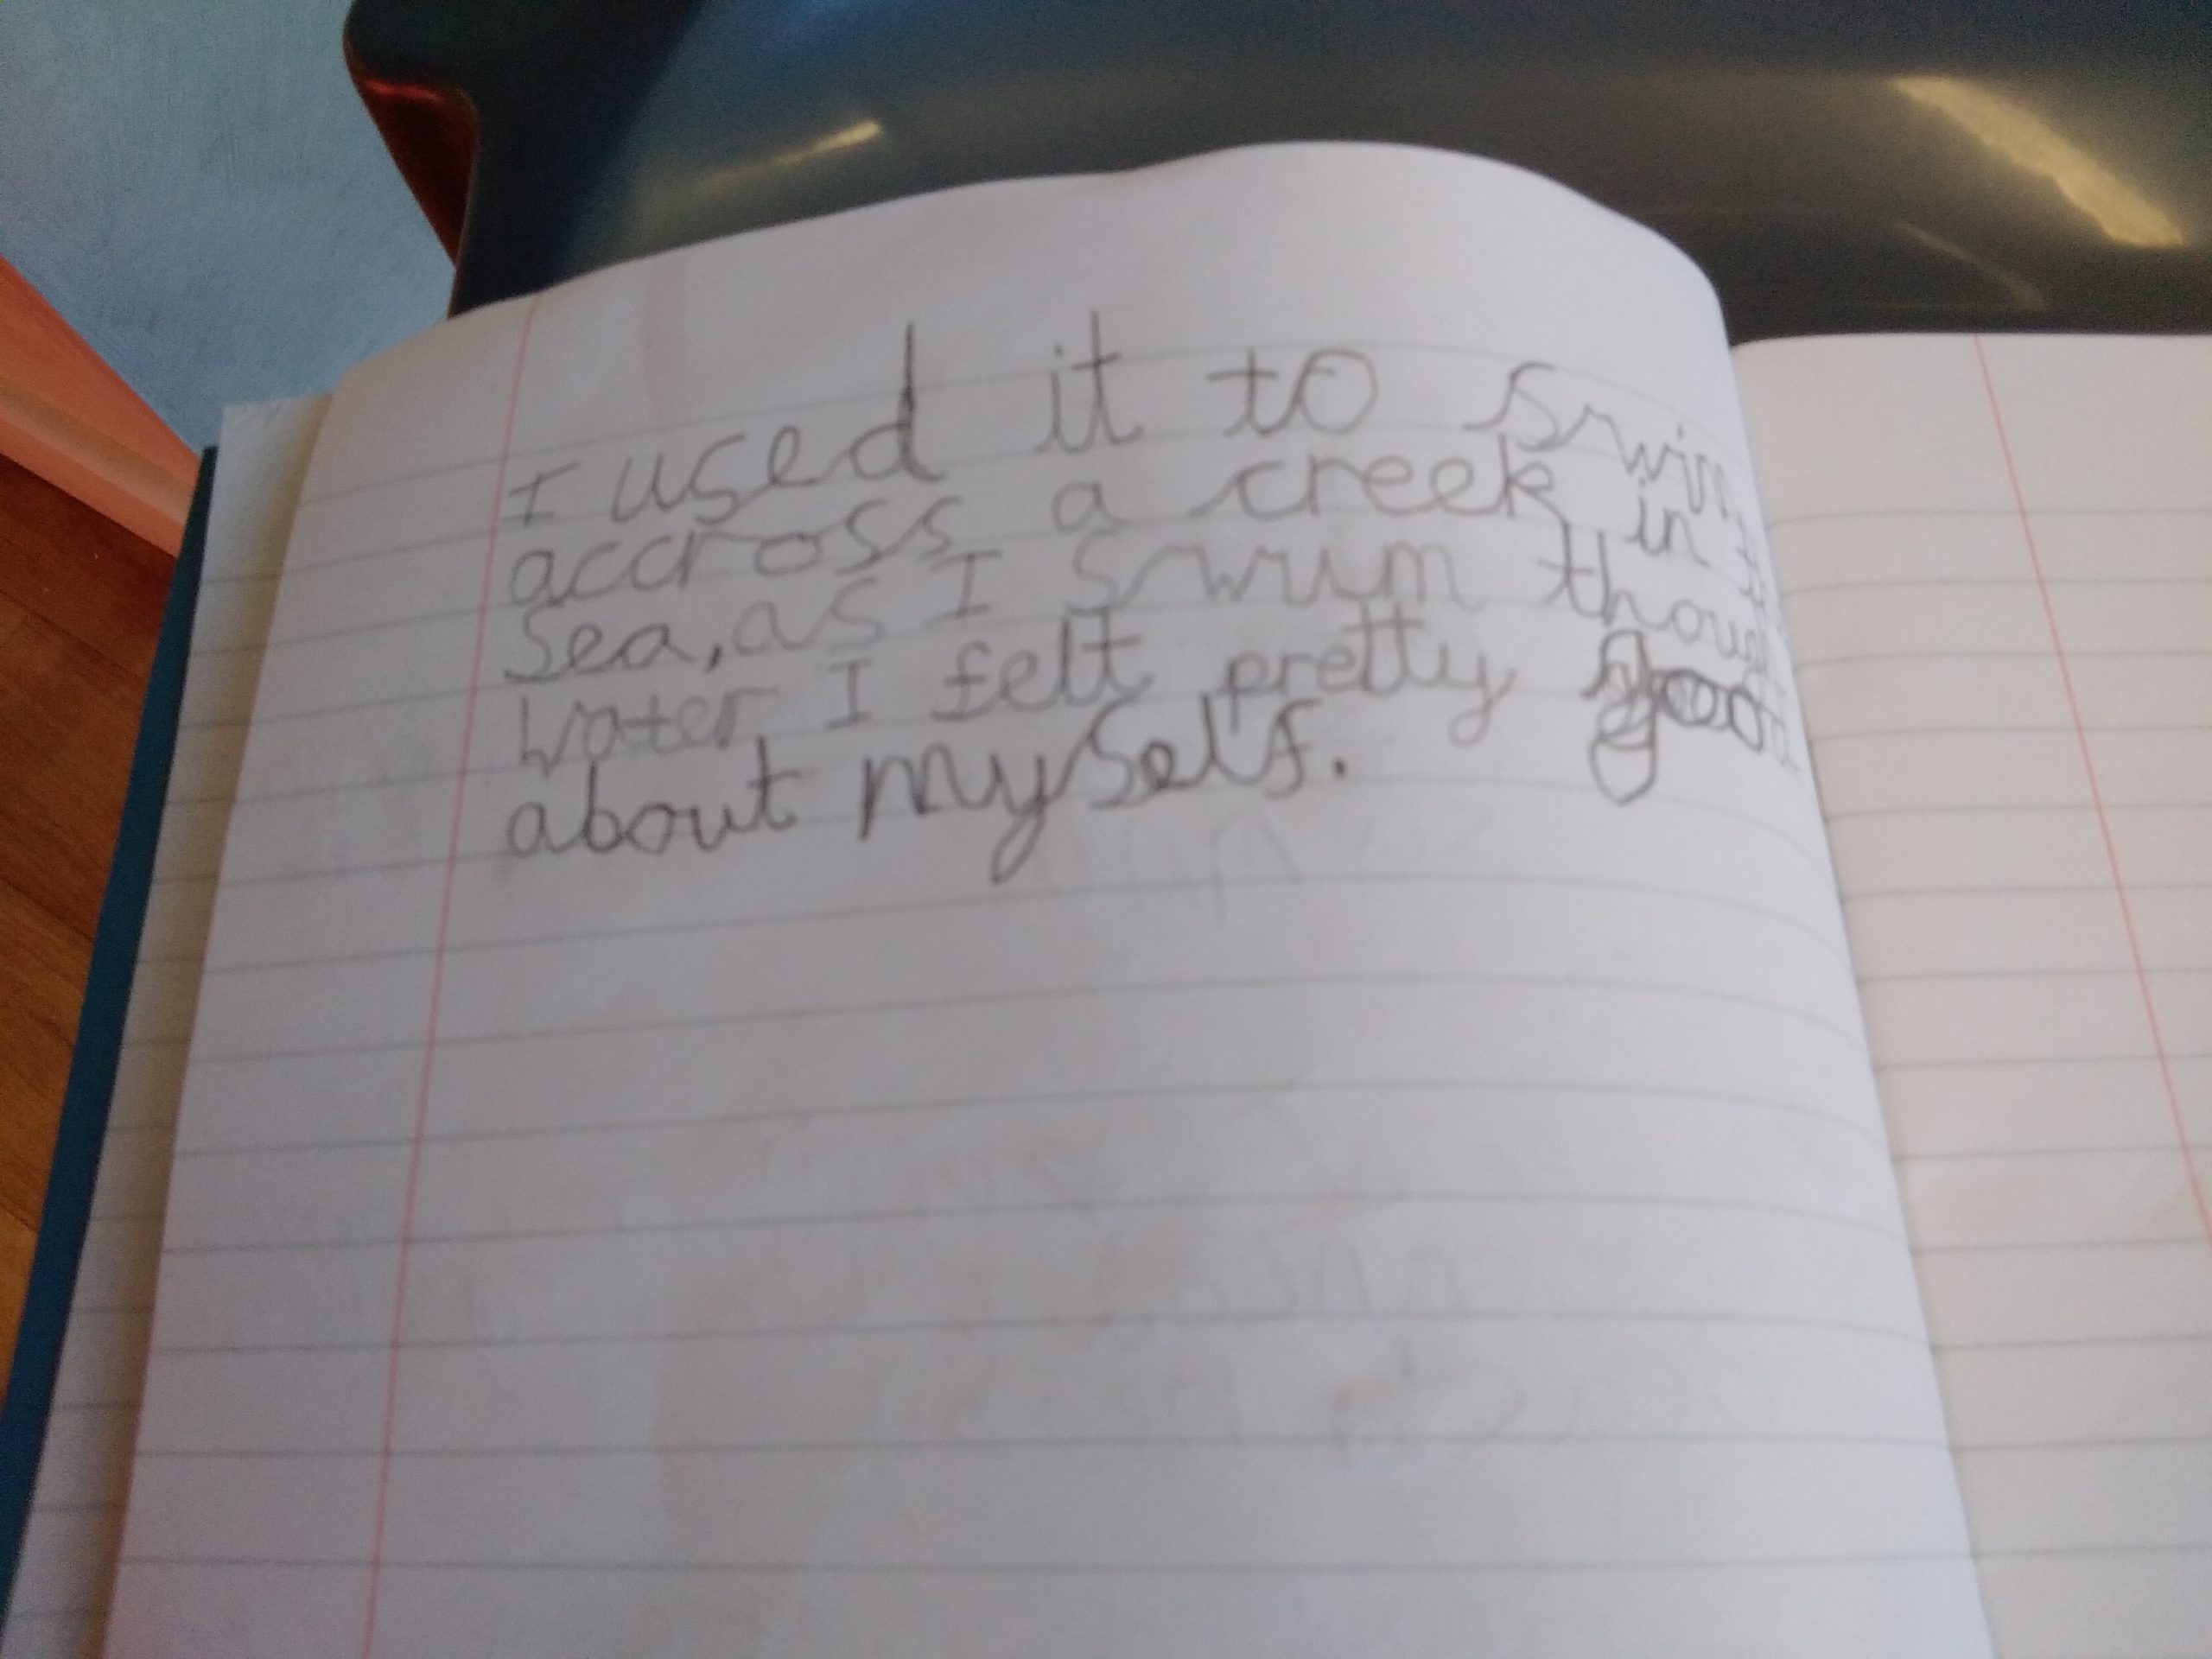 I used it to swim
accross a creek in
sea, as I swum
water I felt pretty good
about myself.